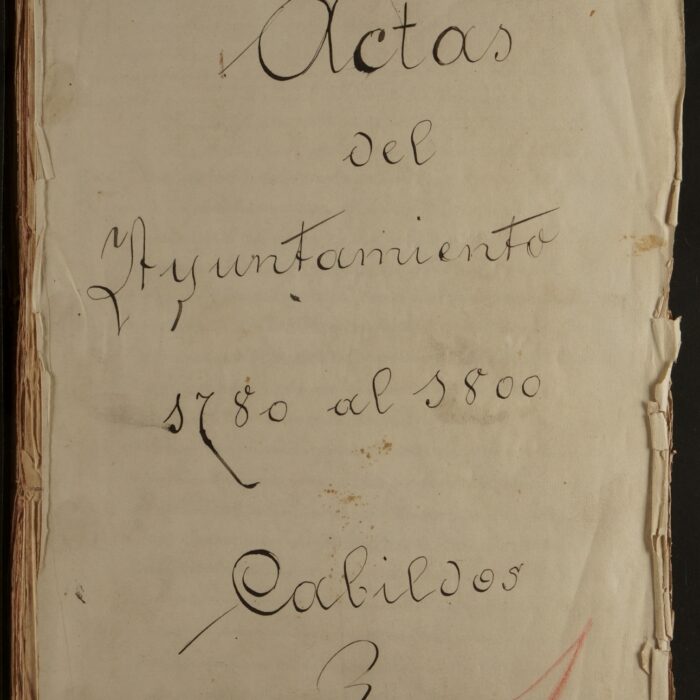 Actas
del
Ayuntamiento
1780 al 1800
Cabildos